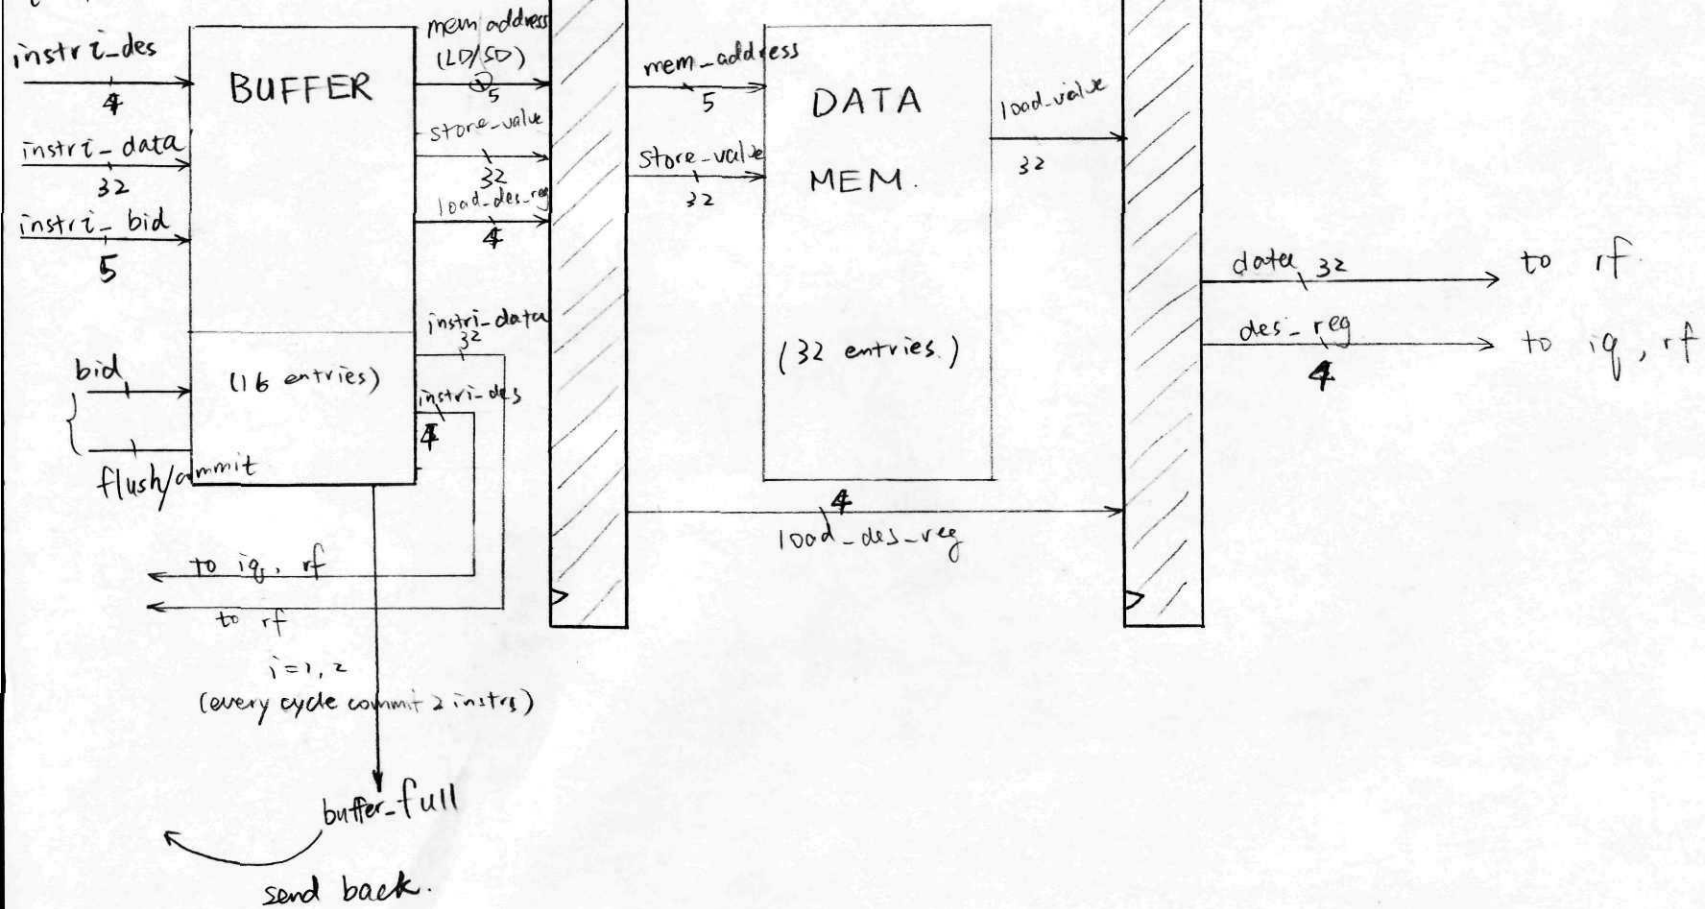 instri_des
4
instri_data
32
instri_bid
5
bid
flush/commit
BUFFER
(16 entries)
mem address
(LD/SD)
5
store_value
32
load_des_reg
4
instri_data
32
instri_des
4
to iq, rf
to rf
i=1, 2
(every cycle commit 2 instrs)
buffer_full
send back.
mem_address
5
store_value
32
DATA
MEM.
(32 entries.)
load_value
32
4
load_des_reg
data 32
to rf.
des_reg
4
to iq, rf